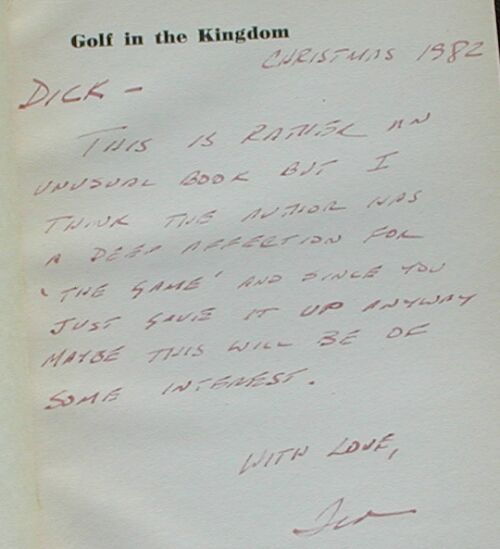 Golf in the Kingdom
CHRISTMAS 1982
DICK -
THIS IS RATHER AN
UNUSUAL BOOK BUT I
THINK THE AUTHOR HAS
A DEEP AFFECTION FOR
'THE GAME' AND SINCE YOU
JUST GAVE IT UP ANYWAY
MAYBE THIS WILL BE OF
SOME INTEREST.
WITH LOVE,